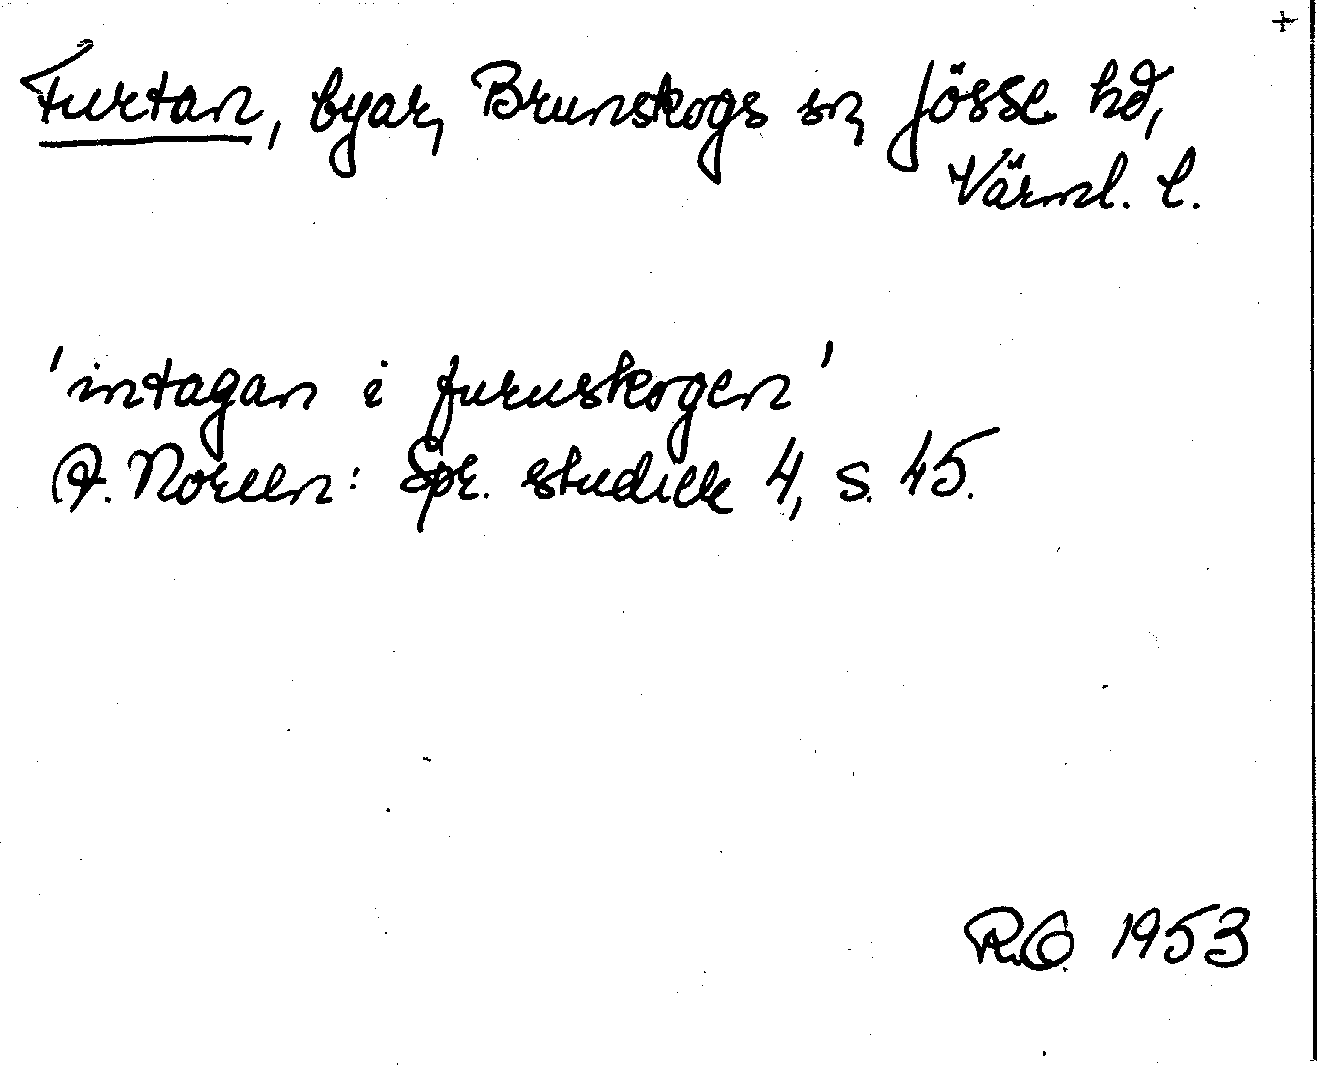 +
Furtan, byar, Brunskogs sn, Jösse hd,
Värml. l.
'intagan i furuskogen'
A. Noreen: Spr. studier 4, s. 45.
R.O. 1953